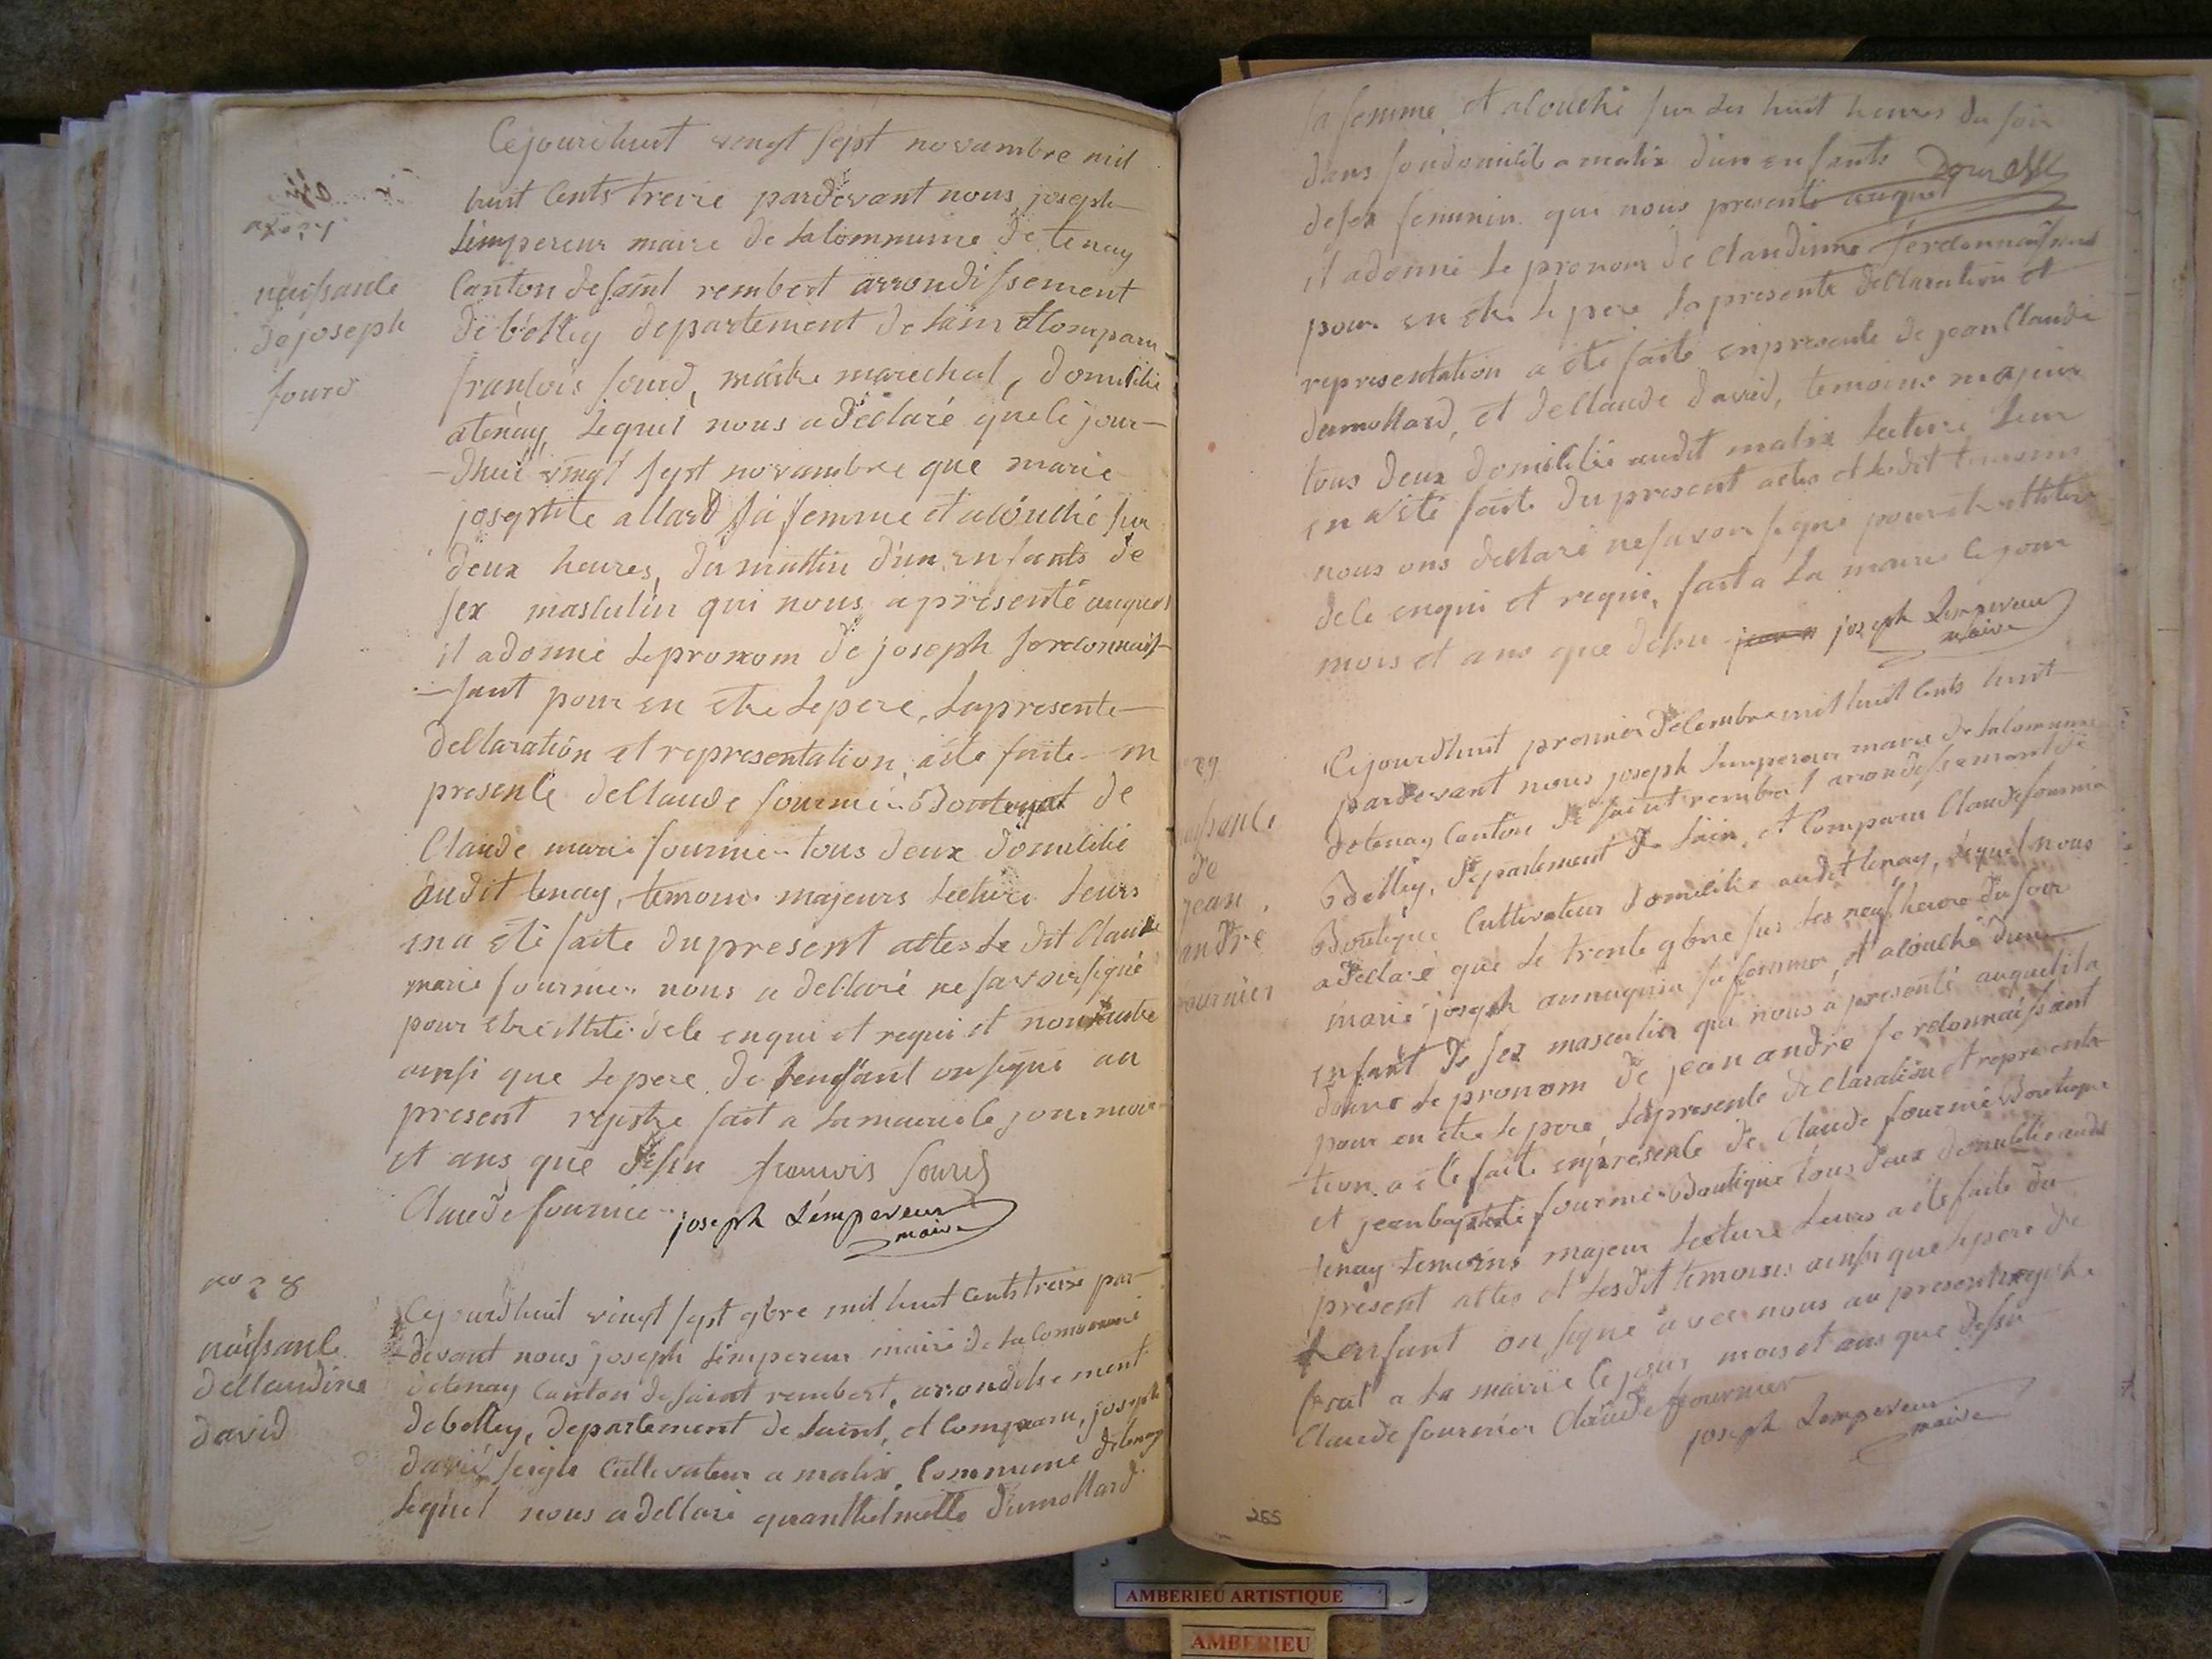 no 27
naissance
de joseph
sourd
Cejourdhuit vengt sept novambre mil
huit Cents treize pardevant nous joseph
Lempereur maire de la Commune de tenay
Canton de saint rembert arrondissement
de bélley departement de lain et Comparu
françois sourd, maitre marechal, domicilié
a tenay, Lequel nous a déclaré que le jour-
-dhui vingt sept novambre que marie
josephte allard sa femme et acouché sur
deux heures, du mattin d'un enfants de
sex masculin qui nous a présenté auquel
il a donné le pronom de joseph se reconnais-
-sant pour en etre le pere, La presente
declaration et representation, a été faite en
presence de Claude fournier et de
Claude marie fournier tous deux domicilié
audit tenay, temoins majeurs lecture leurs
en a été faite du present actes Le dit Claude
marie fournier nous a déclaré ne savoir signé
pour etre de ce enqui et requi et nous
ainsi que le pere de Lenfant on signé au
present registre fait a La mairie le jour mois
et ans que desu françois sourd
Claude fournier joseph Lémpereur
maire
no 28
naissance
de Claudine
david
Cejourdhuit vingt sept 9bre mil huit Cents treize par-
-devant nous joseph Lémpereur maire de la Commune
de tenay Canton de saint rembert, arrondissement
de belley, departement de Laint, et Comparu, joseph
david Cultivateur a malix, Commune de tenay
Lequel nous a déclaré dumollard
sa femme et acouché sur les huit heures du soir
dans son domicile a malix d'un enfants
de sex feminin qui nous presenté auquel
il a donné le pronom de Claudinne se reconnaissant
pour en etre le pere La presente declaration et
representation a été faite en presence de jean Claude
dumollard, et de Claude david, temoins majeur
tous deux domicilié audit malix lecture leur
en a été faite du present actes et ledit temoins
nous ons déclaré ne savoir signé pour etre
de ce enqui et requi, fait a La mairie le jour
mois et ans que desu joseph Lempereur
maire
29
de
jean
andre
fournier
Cejourdhuit premier décembre mil huit Cents huit
pardevant nous joseph Lempereur maire de la Commune
de tenay Canton de saint rembert arrondissement de
Belley, departement de Lain, et Comparu Claude fournier
Boutique Cultivateur domicilié audit tenay, Lequel nous
a déclaré que le trente 9bre sur les neuf heure du soir
marie joseph sa femme, et acouché d'un
enfant de sex masculin qui nous a presenté auquel il a
donné le pronom de jean andré se reconnaissant
pour en etre le pere, La presente déclaration et representa
-tion a été faite en presence de Claude fournier Boutique
et jean baptiste fournier Boutique tous deux domicilié audit
tenay temoins majeur lecture leurs a été faite du
present actes et lesdit temoins ainsi que le pere de
Lenfant on signé avec nous au present registre
fait a La mairie le jour mois et ans que desu
Claude fournier Claude fournier
joseph Lempereur
maire
265
AMBERIEU ARTISTIQUE
AMBERIEU